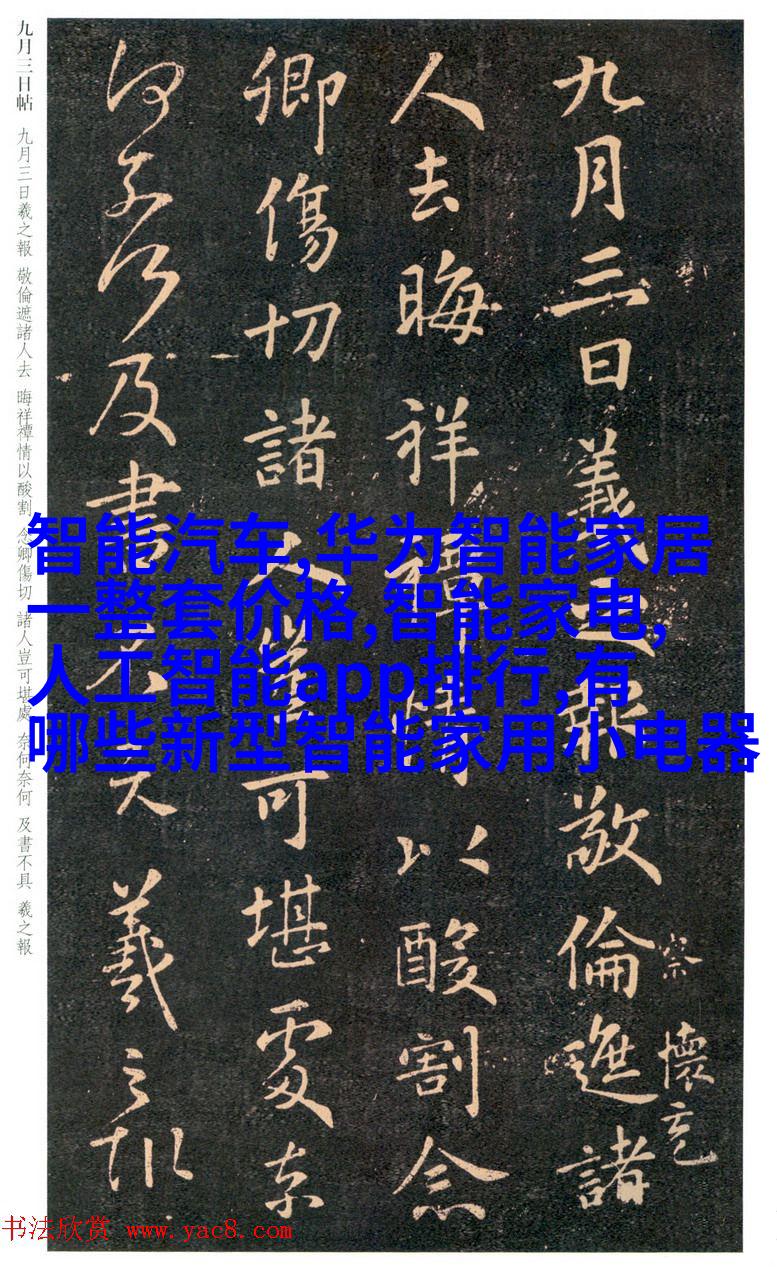 九月三日羲之報敬倫遮諸
察 懷充
人去晦祥禫情以酸割念
卿傷切諸人豈可堪處奈
何奈何及書不具羲之報
九月三日帖 九月三日羲之報 敬倫遮諸人去 晦祥禫情以酸割 念卿傷切 諸人豈可堪處 奈何奈何 及書不具 羲之報
智能汽车,华为智能家居
一整套价格,智能家电,
人工智能app排行,有
哪些新型智能家用小电器
书法欣赏 www.yac8.com